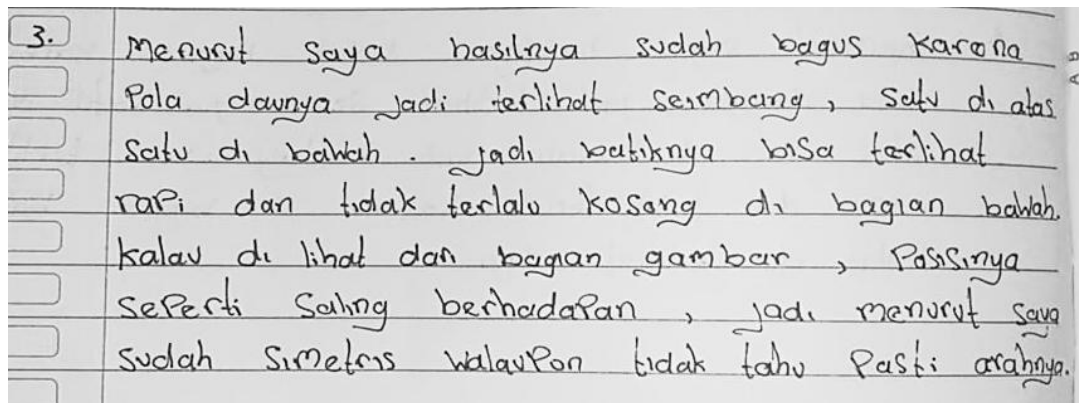 3. Menurut saya hasilnya sudah bagus Karena
Pola daunya jadi terlihat seimbang, satu di atas
Satu di bawah. jadi batiknya bisa terlihat
rapi dan tidak terlalu kosong di bagian bawah.
Kalau di lihat dari bagian gambar, Posisinya
seperti saling berhadapan, jadi menurut saya
sudah simetris walaupon tidak tahu Pasti arahnya.